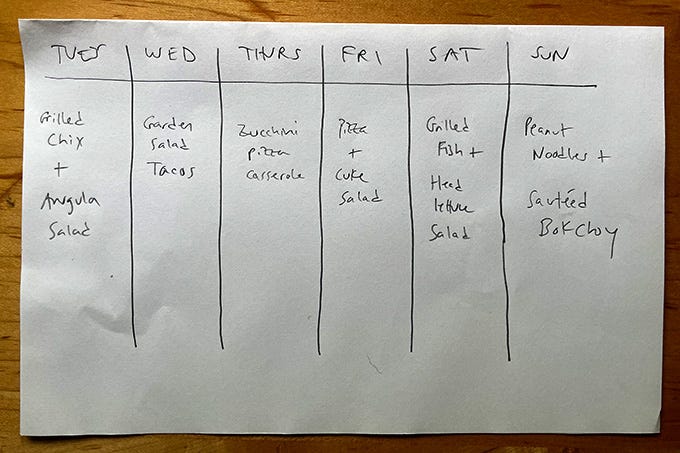 TUES WED THURS FRI SAT SUN
Grilled
Chix
+
Arugula
Salad
Garden
Salad
Tacos
Zucchini
pizza
casserole
Pizza
+
Cuke
Salad
Grilled
Fish +
Head
lettuce
Salad
Peanut
Noodles +
Sautéed
Bok Choy